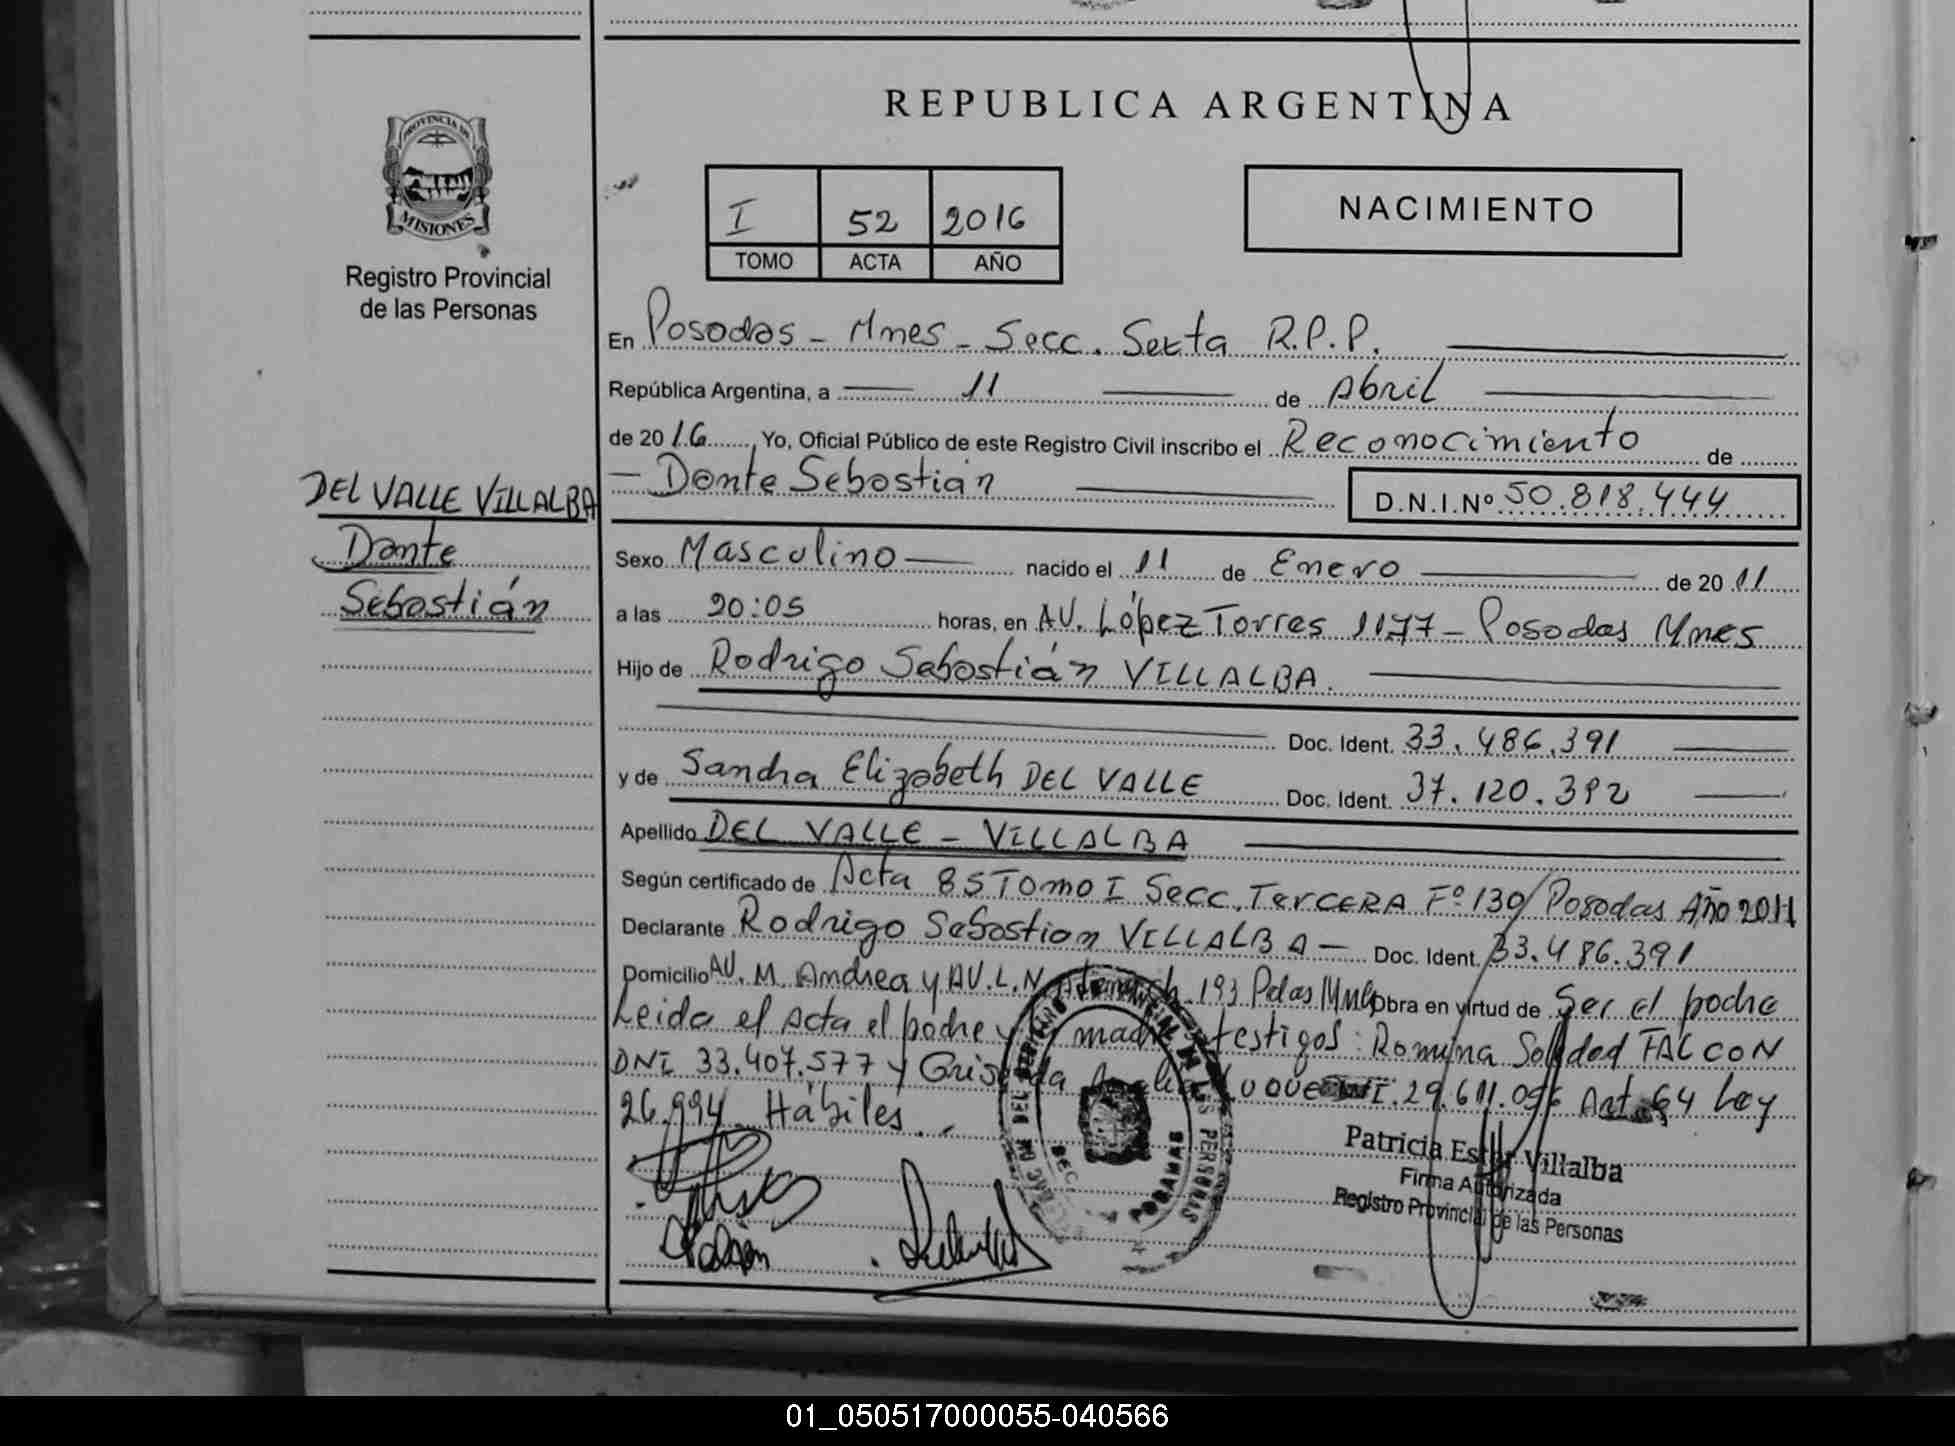 REPUBLICA ARGENTINA
PROVINCIA DE
MISIONES
Registro Provincial
de las Personas
I 52 2016
TOMO ACTA AÑO
NACIMIENTO
En Posadas - Mnes - Secc. Sexta R.P.P.
República Argentina, a 11 de Abril
de 2016, Yo, Oficial Público de este Registro Civil inscribo el Reconocimiento de
- Dante Sebastián
D.N.I.Nº 50.818.444
DEL VALLE VILLALBA
Dante
Sebastián
Sexo Masculino nacido el 11 de Enero de 2011
a las 20:05 horas, en AV. López Torres 1177 - Posadas Mnes
Hijo de Rodrigo Sebastián VILLALBA.
Doc. Ident. 33.486.391
y de Sandra Elizabeth DEL VALLE Doc. Ident. 37.120.392
Apellido DEL VALLE - VILLALBA
Según certificado de Acta 85 Tomo I Secc. TERCERA Fº 130/ Posadas Año 2011
Declarante Rodrigo Sebastian VILLALBA - Doc. Ident. 33.486.391
Domicilio AV. M. Andrea y AV. L.N. 193 Pdas Mnes obra en virtud de Ser el padre
Leida el Acta el padre y la madre testigos: Romina Soledad FALCON
DNI 33.407.577 y Griselda LUQUE 29.611.096 Art. 64 Ley
26.994 Hábiles.
REGISTRO PROVINCIAL DE LAS PERSONAS
SEC.
POSADAS
Patricia Ester Villalba
Firma Autorizada
Registro Provincial de las Personas
01_050517000055-040566